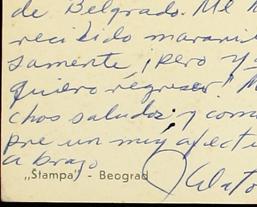 de Belgrado. Me h
recibido maravi
samente, ¡pero y
quiero regresar! M
chos saludos, y com
pre un muy afectu
abrazo
„Stampa” - Beograd